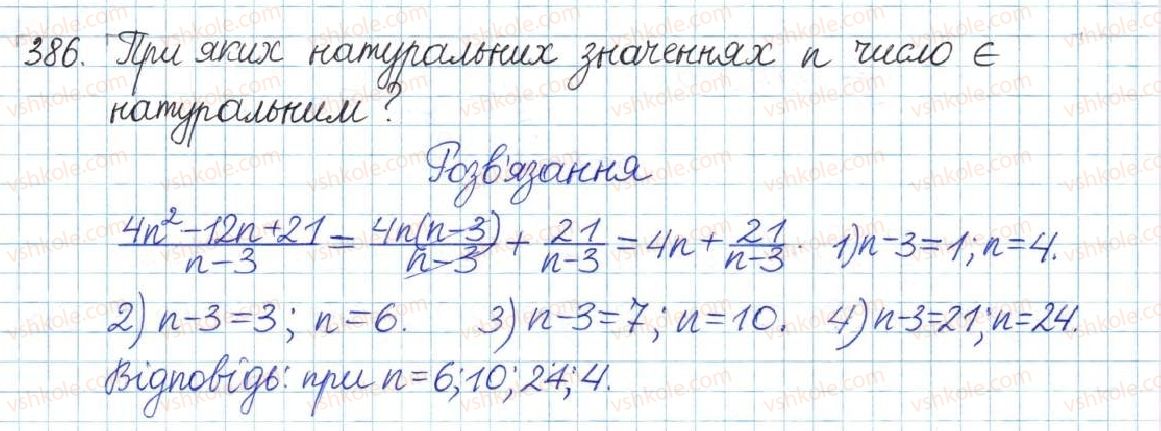 386. При яких натуральних значеннях n число є
натуральним?
Розв'язання
(4n²-12n+21)/(n-3) = 4n(n-3)/(n-3) + 21/(n-3) = 4n + 21/(n-3). 1) n-3=1; n=4.
2) n-3=3; n=6. 3) n-3=7; n=10. 4) n-3=21; n=24.
Відповідь: при n=6; 10; 24; 4.